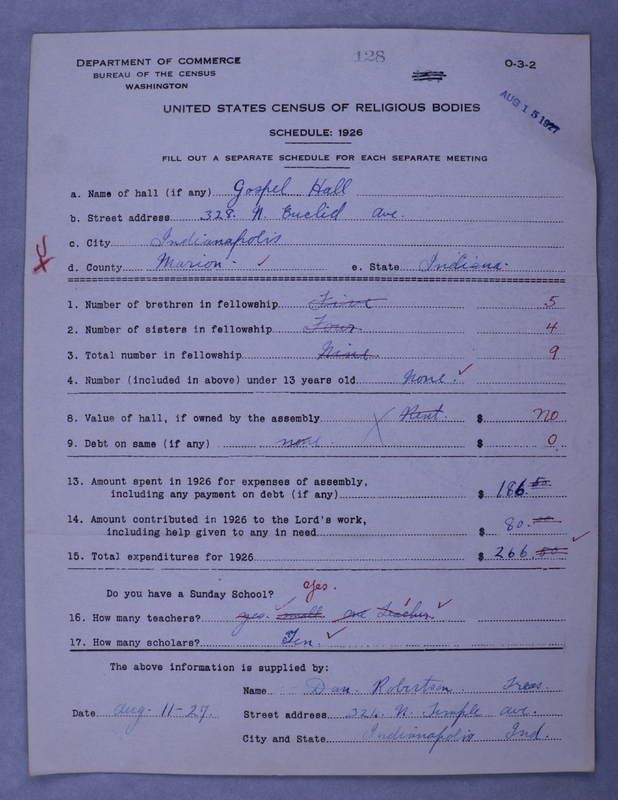 DEPARTMENT OF COMMERCE
BUREAU OF THE CENSUS
WASHINGTON
128
O-3-2
AUG 15 1927
UNITED STATES CENSUS OF RELIGIOUS BODIES
SCHEDULE: 1926
FILL OUT A SEPARATE SCHEDULE FOR EACH SEPARATE MEETING
a. Name of hall (if any) Gospel Hall
b. Street address 328 N. Euclid ave.
c. City Indianapolis
d. County Marion. ✓ e. State Indiana.
1. Number of brethren in fellowship Five 5
2. Number of sisters in fellowship Four 4
3. Total number in fellowship Nine 9
4. Number (included in above) under 13 years old none. ✓
8. Value of hall, if owned by the assembly Rent. $ no
9. Debt on same (if any) none. $ 0
13. Amount spent in 1926 for expenses of assembly,
including any payment on debt (if any) $ 186.50
14. Amount contributed in 1926 to the Lord's work,
including help given to any in need $ 80.00
15. Total expenditures for 1926 $ 266.50 ✓
Do you have a Sunday School? yes.
16. How many teachers? yes. small one teacher ✓
17. How many scholars? Ten. ✓
The above information is supplied by:
Name Dan. Robertson Treas.
Date aug-11-27 Street address 326 N. Temple ave.
City and State Indianapolis Ind.